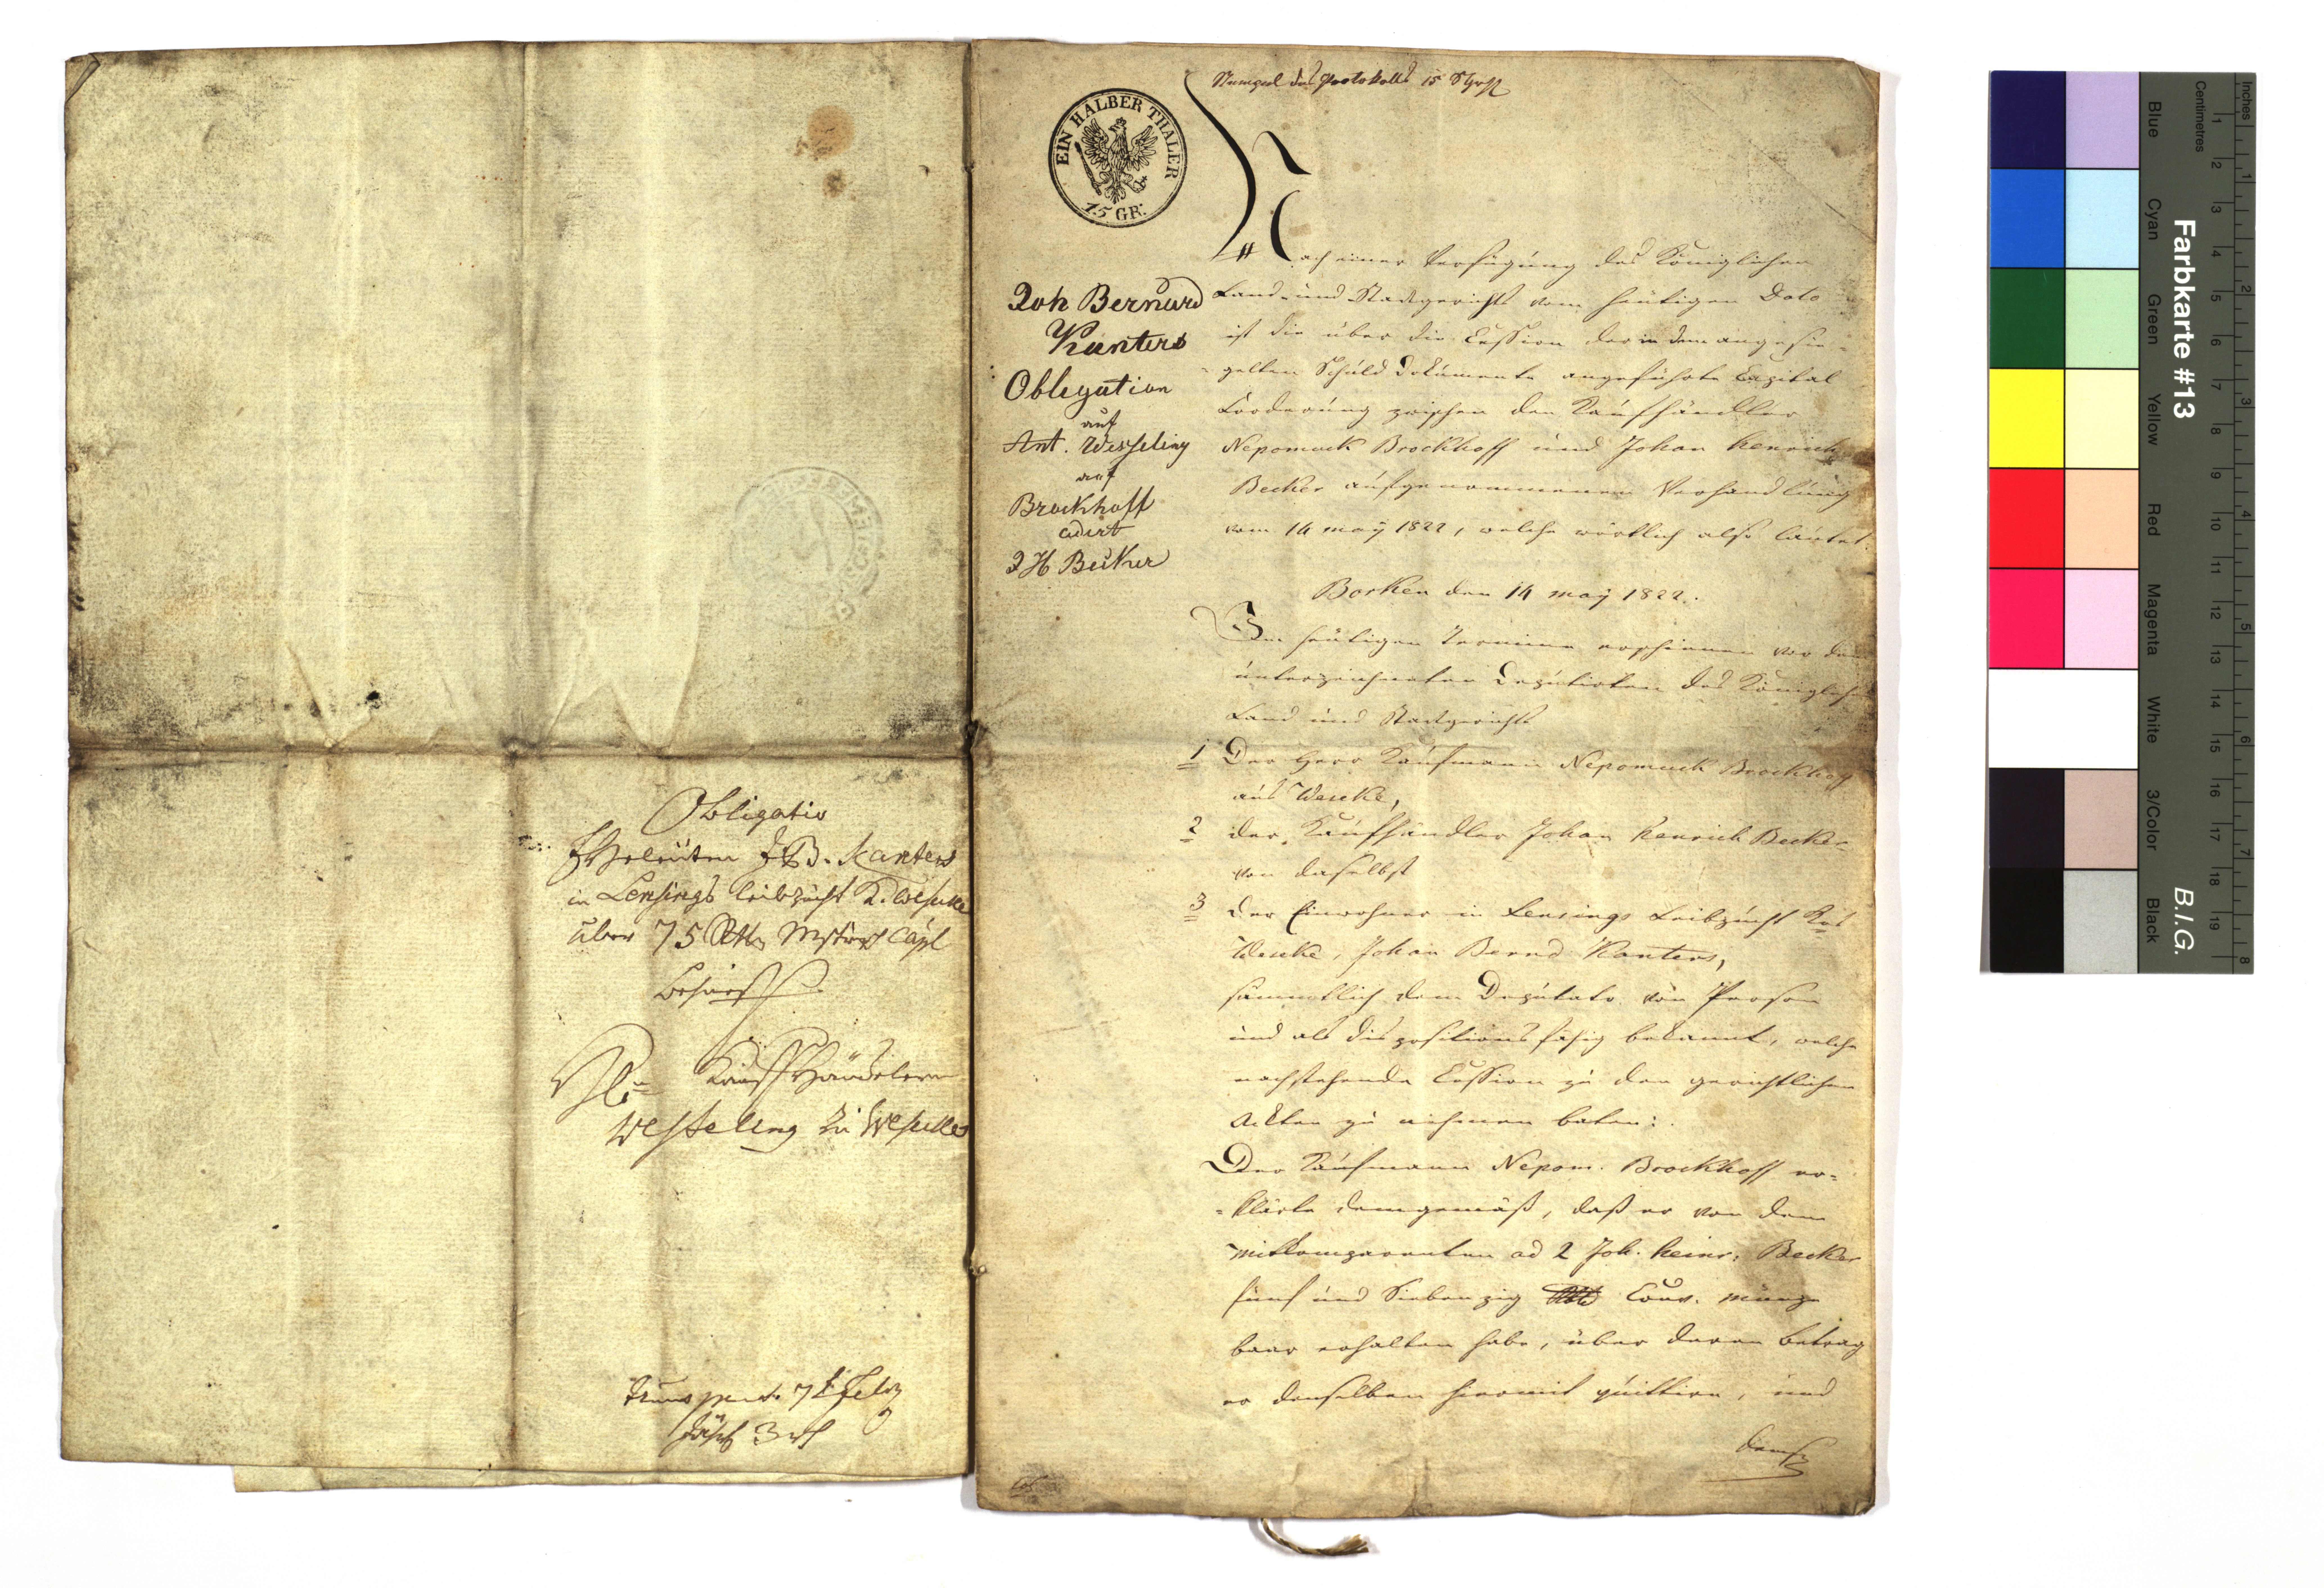 Obligatio
Eheleuten J. B. Kanters
in Lensings Leibzucht K. Weseke
über 75 Rthr Münst Capl
behuef
Hn Kaufhändelern
Wesseling zu Weseke
Stempel des Protokolls 15 Sgr
EIN HALBER THALER
15 GR:
Joh Bernard
Kanters
Obligation
auf
Ant. Wesseling
auf
Brockhoff
cedirt
J H Becker
Nach einer Verfügung des Königlichen
Land- und Stadtgerichts vom heutigen Dato
ist die über die Cession der in dem angesie-
gelten Schuld Dokumente angeführte Capital
Forderung zwischen den Kaufhändler
Nepomuck Brockhoff und Johan Henrich
Becker aufgenommenen Verhandlung
vom 14 may 1822, welche wörtlich also lautet.
Borken den 14 may 1822.
Im heutigen Termine erschienen vor dem
unterzeichneten Deputirten des Königlichen
Land und Stadtgerichts
1 Der Herr Kaufmann Nepomuck Brockhoff
aus Weseke,
2 der Kaufhändler Johan Henrich Becker
von daselbst
3 der Einwohner in Lensings Leibzucht Ksp
Weseke, Johan Bernd Kanters,
sämmtlich dem Deputato von Person
und als dispositionsfähig bekannt, welche
nachstehende Cession zu den gerichtlichen
Ackten zu nehmen baten:
Der Kaufmann Nepom. Brockhoff er-
-klärte demgemäß, daß er von dem
Mitkomparenten ad 2 Joh. Heinr. Becker
fünf und Siebenzig Cour. münze
baar erhalten habe, über deren Betrag
er denselben hiermit quittire, und
dems